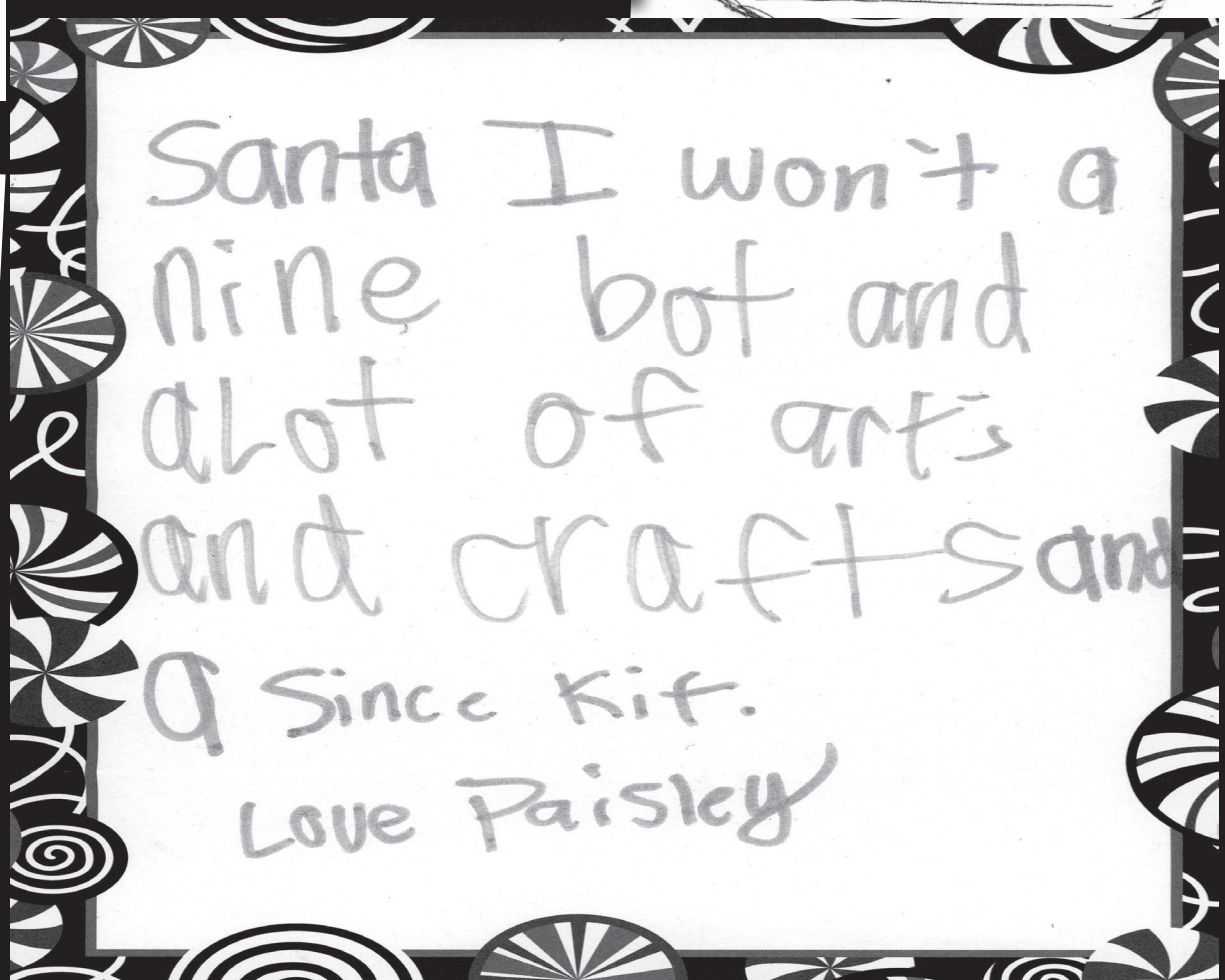 Santa I won't a
nine bot and
aLot of art's
and crafts and
a Since Kit.
Love Paisley